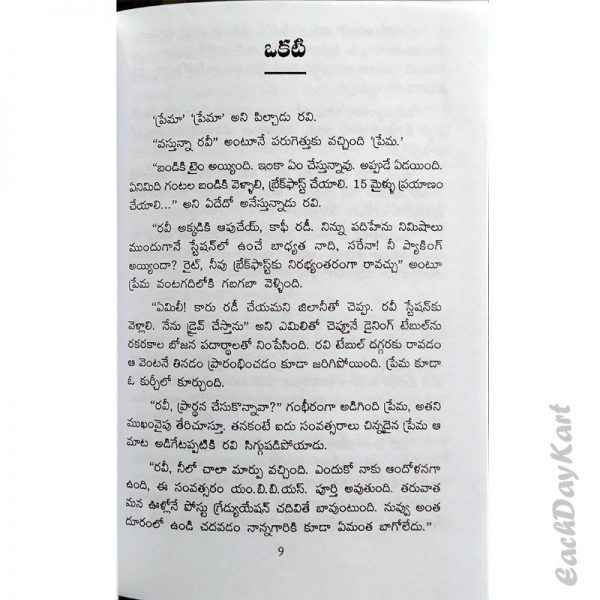 ఒకటి
‘ప్రేమా’ ‘ప్రేమా’ అని పిల్చాడు రవి.
“వస్తున్నా రవీ” అంటూనే పరుగెత్తుకు వచ్చింది ‘ప్రేమ.’
“బండికి టైం అయ్యింది. ఇంకా ఏం చేస్తున్నావు. అప్పుడే ఏడయింది.
ఏనిమిది గంటల బండికి వెళ్ళాలి, బ్రేక్‌ఫాస్ట్ చేయాలి. 15 మైళ్ళు ప్రయాణం
చేయాలి...” అని ఏదేదో అనేస్తున్నాడు రవి.
“రవీ అక్కడికి ఆపుచేయ్, కాఫీ రడీ. నిన్ను పదిహేను నిమిషాలు
ముందుగానే స్టేషన్‌లో ఉంచే బాధ్యత నాది, సరేనా! నీ ప్యాకింగ్
అయ్యిందా? రైట్, నీవు బ్రేక్‌ఫాస్ట్‌కు నిరభ్యంతరంగా రావచ్చు” అంటూ
ప్రేమ వంటగదిలోకి గబగబా వెళ్ళింది.
“ఏమిలీ! కారు రడీ చేయమని జిలానీతో చెప్పు. రవీ స్టేషన్‌కు
వెళ్లాలి. నేను డ్రైవ్ చేస్తాను” అని ఎమిలితో చెప్తూనే డైనింగ్ టేబుల్‌ను
రకరకాల బోజన పదార్థాలతో నింపేసింది. రవి టేబుల్ దగ్గరకు రావడం
ఆ వెంటనే తినడం ప్రారంభించడం కూడా జరిగిపోయింది. ప్రేమ కూడా
ఓ కుర్చీలో కూర్చుంది.
“రవీ, ప్రార్థన చేసుకొన్నావా?” గంభీరంగా అడిగింది ప్రేమ, అతని
ముఖంవైపు తేరిచూస్తూ. తనకంటే ఐదు సంవత్సరాలు చిన్నదైన ప్రేమ ఆ
మాట అడిగేటప్పటికి రవి సిగ్గుపడిపోయాడు.
“రవీ, నీలో చాలా మార్పు వచ్చింది. ఎందుకో నాకు ఆందోళనగా
ఉంది, ఈ సంవత్సరం యం.బి.బి.యస్. పూర్తి అవుతుంది. తరువాత
మన ఊళ్లోనే పోస్టు గ్రేడ్యుయేషన్ చదివితే బావుంటుంది. నువ్వు అంత
దూరంలో ఉండి చదవడం నాన్నగారికి కూడా ఏమంత బాగోలేదు.”
9
EachDayKart